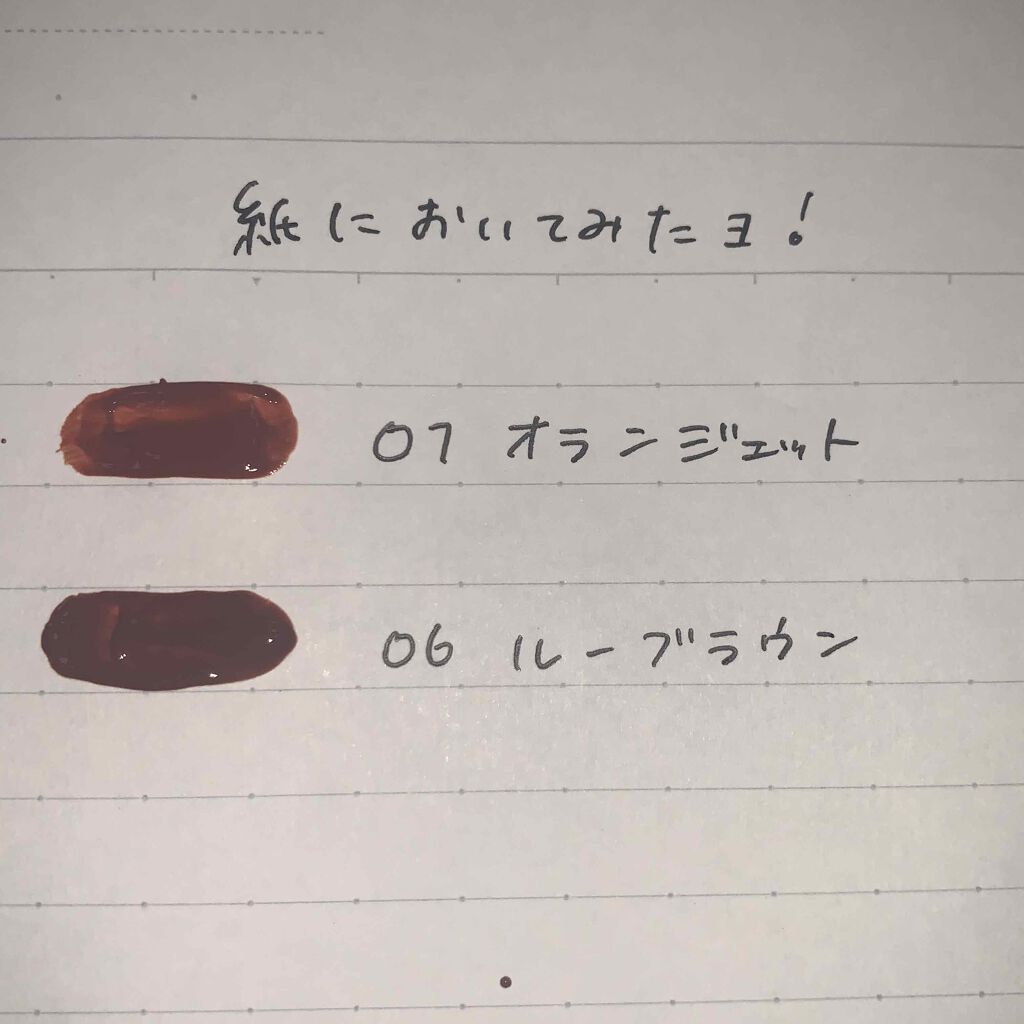 紙においてみたヨ!
07 オランジェット
06 ルーブラウン